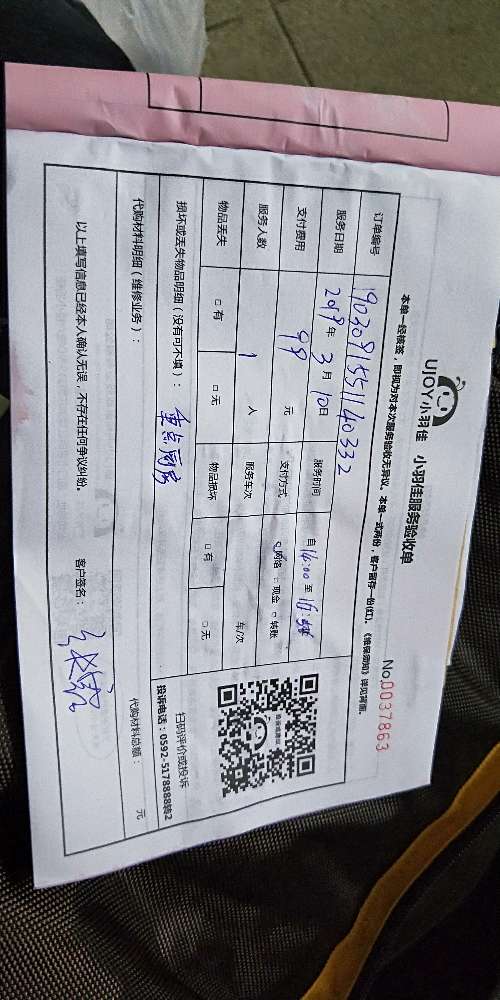 UJOY小羽佳 小羽佳服务验收单
No.0037863
本单一经核签，即视为对本次服务验收无异议。本单一式两份，客户留存一份(红)。《维保须知》详见背面。
订单编号 190309155114033​2
服务日期 2019年3月10日 服务时间 自14:00至
支付费用 99 元 支付方式 □网络 □现金 □转账
服务人数 1 人 服务车次 车/次
物品丢失 □有 □无 物品损坏 □有 □无
损坏或丢失物品明细（没有可不填）： 重点厨房
扫码评价或投诉
投诉电话：0592-5178888转2
代购材料明细（维修业务）： 代购材料总额： 元
以上填写信息已经本人确认无误，不存在任何争议纠纷。 客户签名：